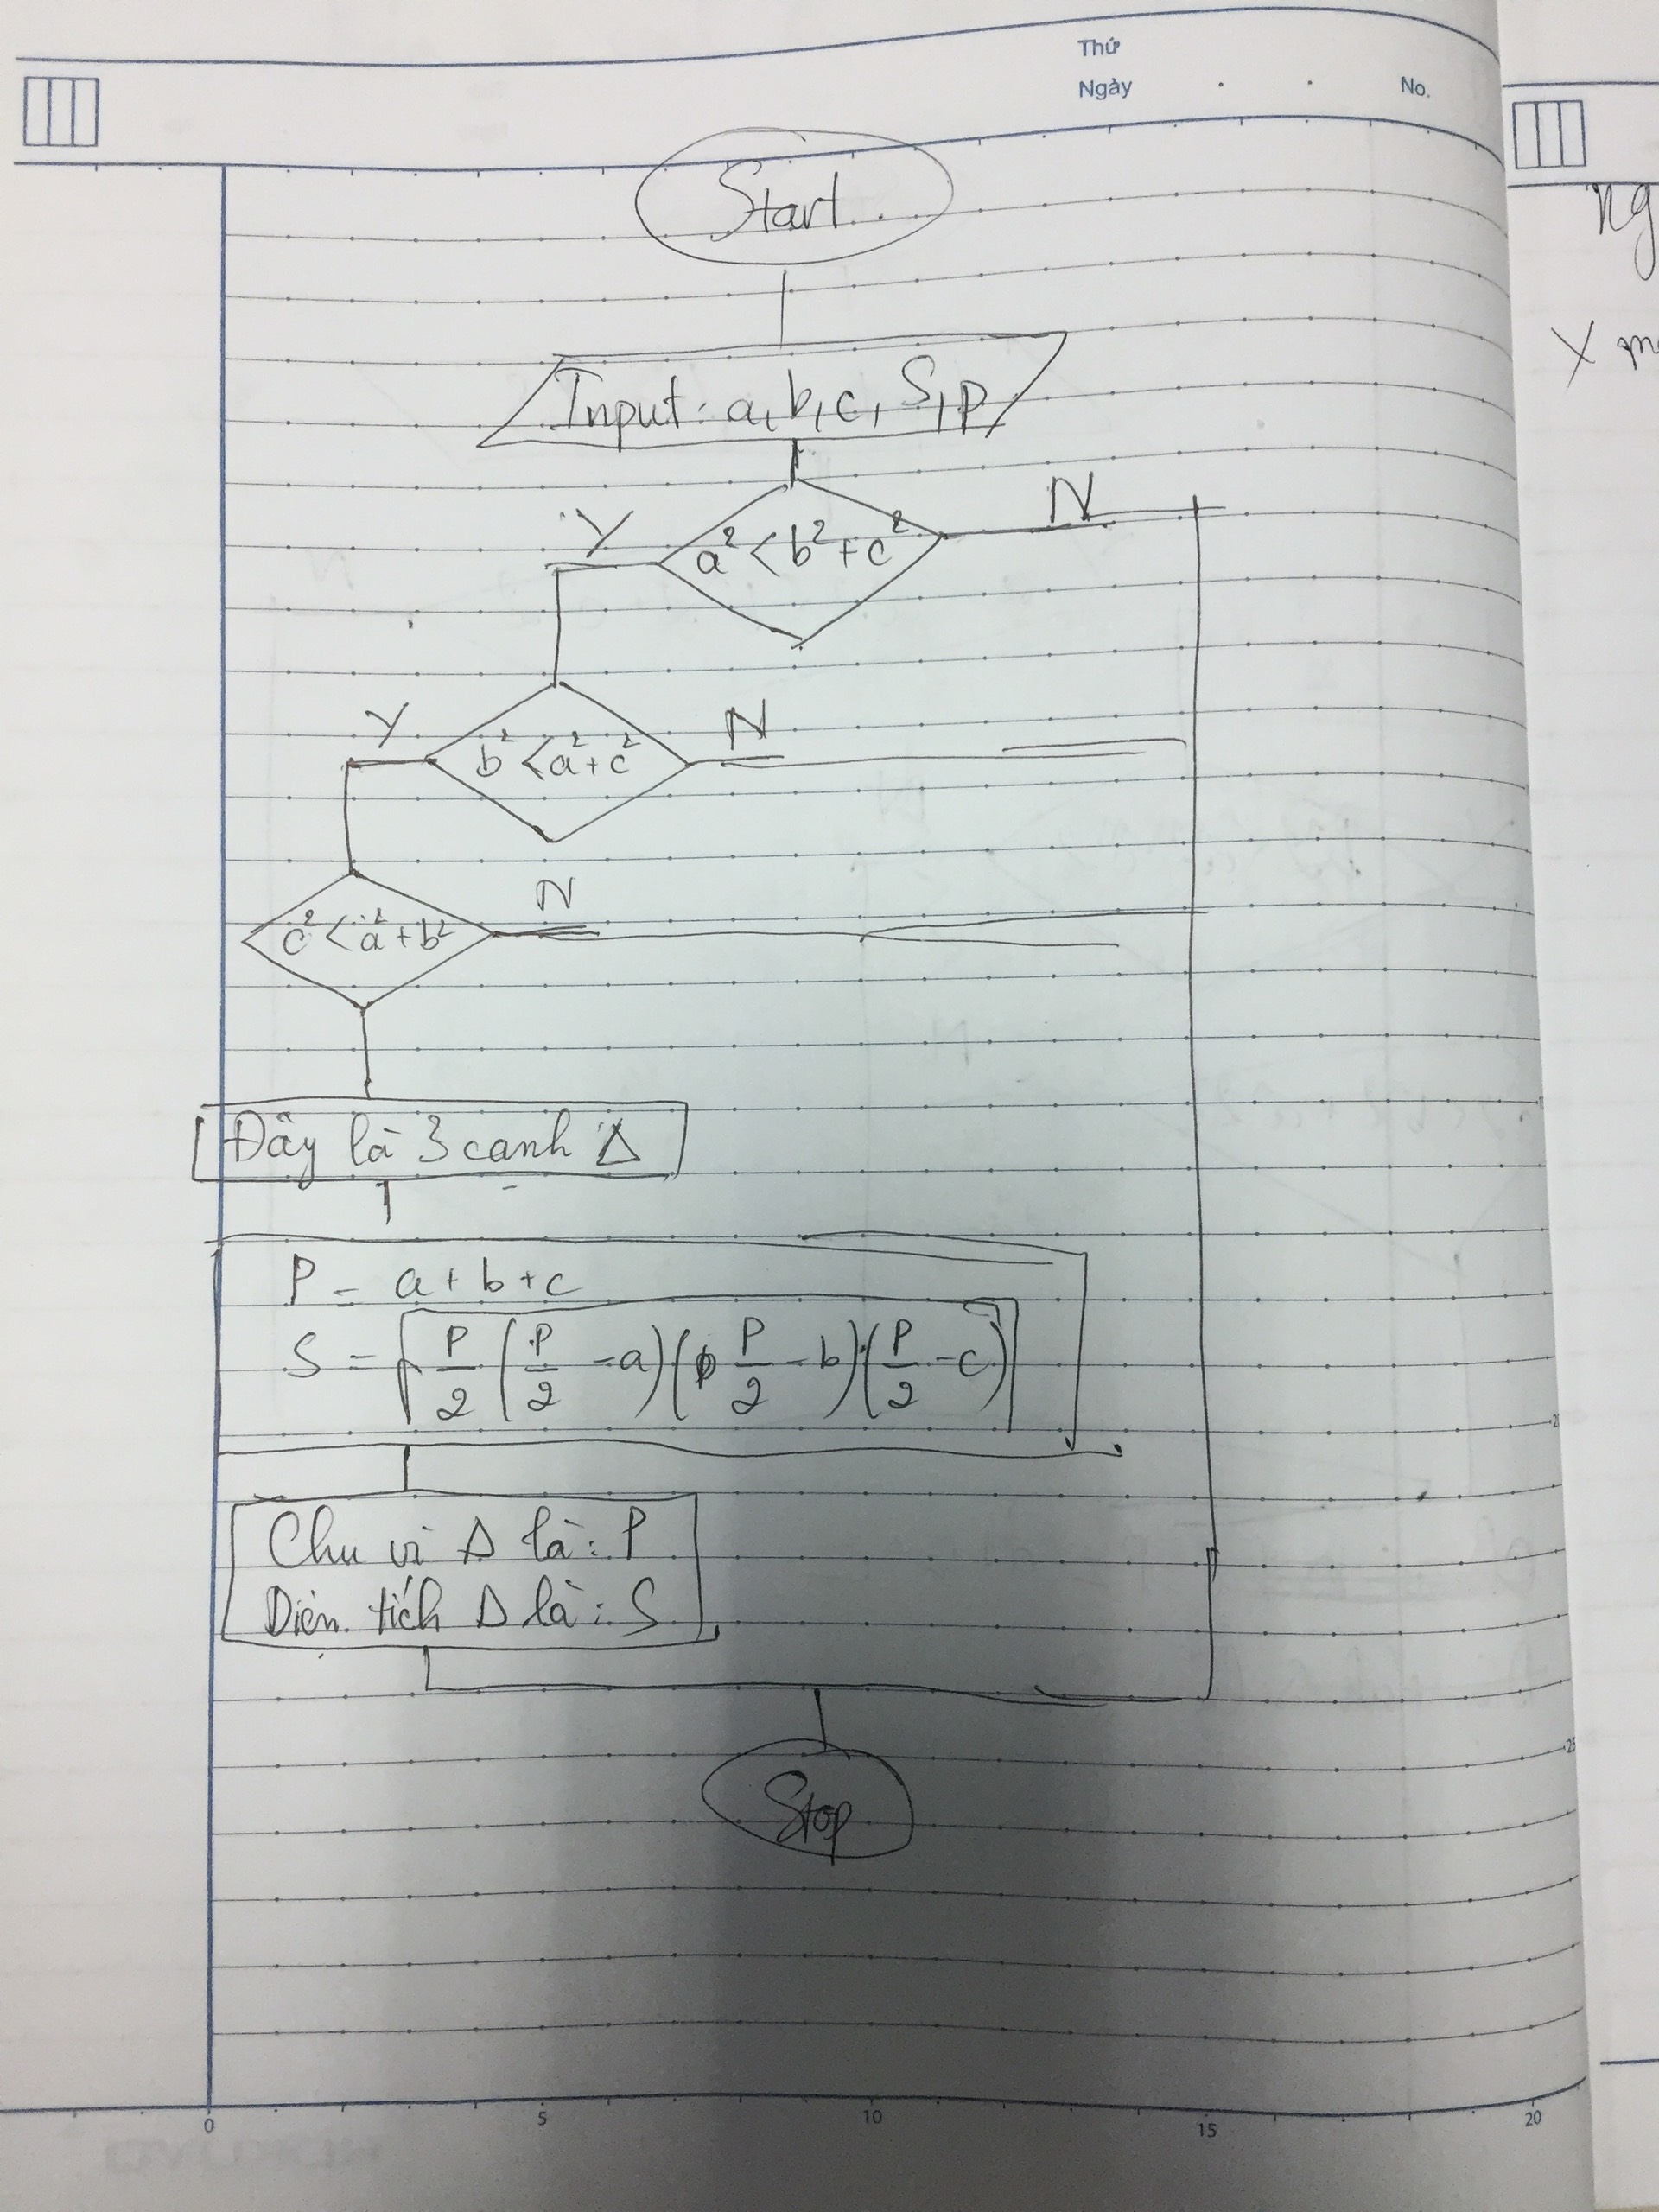 Thứ
Ngày . . No.
Start
Input: a, b, c, S, p
a² < b² + c²
Y
N
b² < a² + c²
Y
N
c² < a² + b²
N
Đây là 3 cạnh Δ
P = a + b + c
S = √ P/2 (P/2 - a)(P/2 - b)(P/2 - c)
Chu vi Δ là: P
Diện tích Δ là: S
Stop
0 5 10 15 20
ng
X m